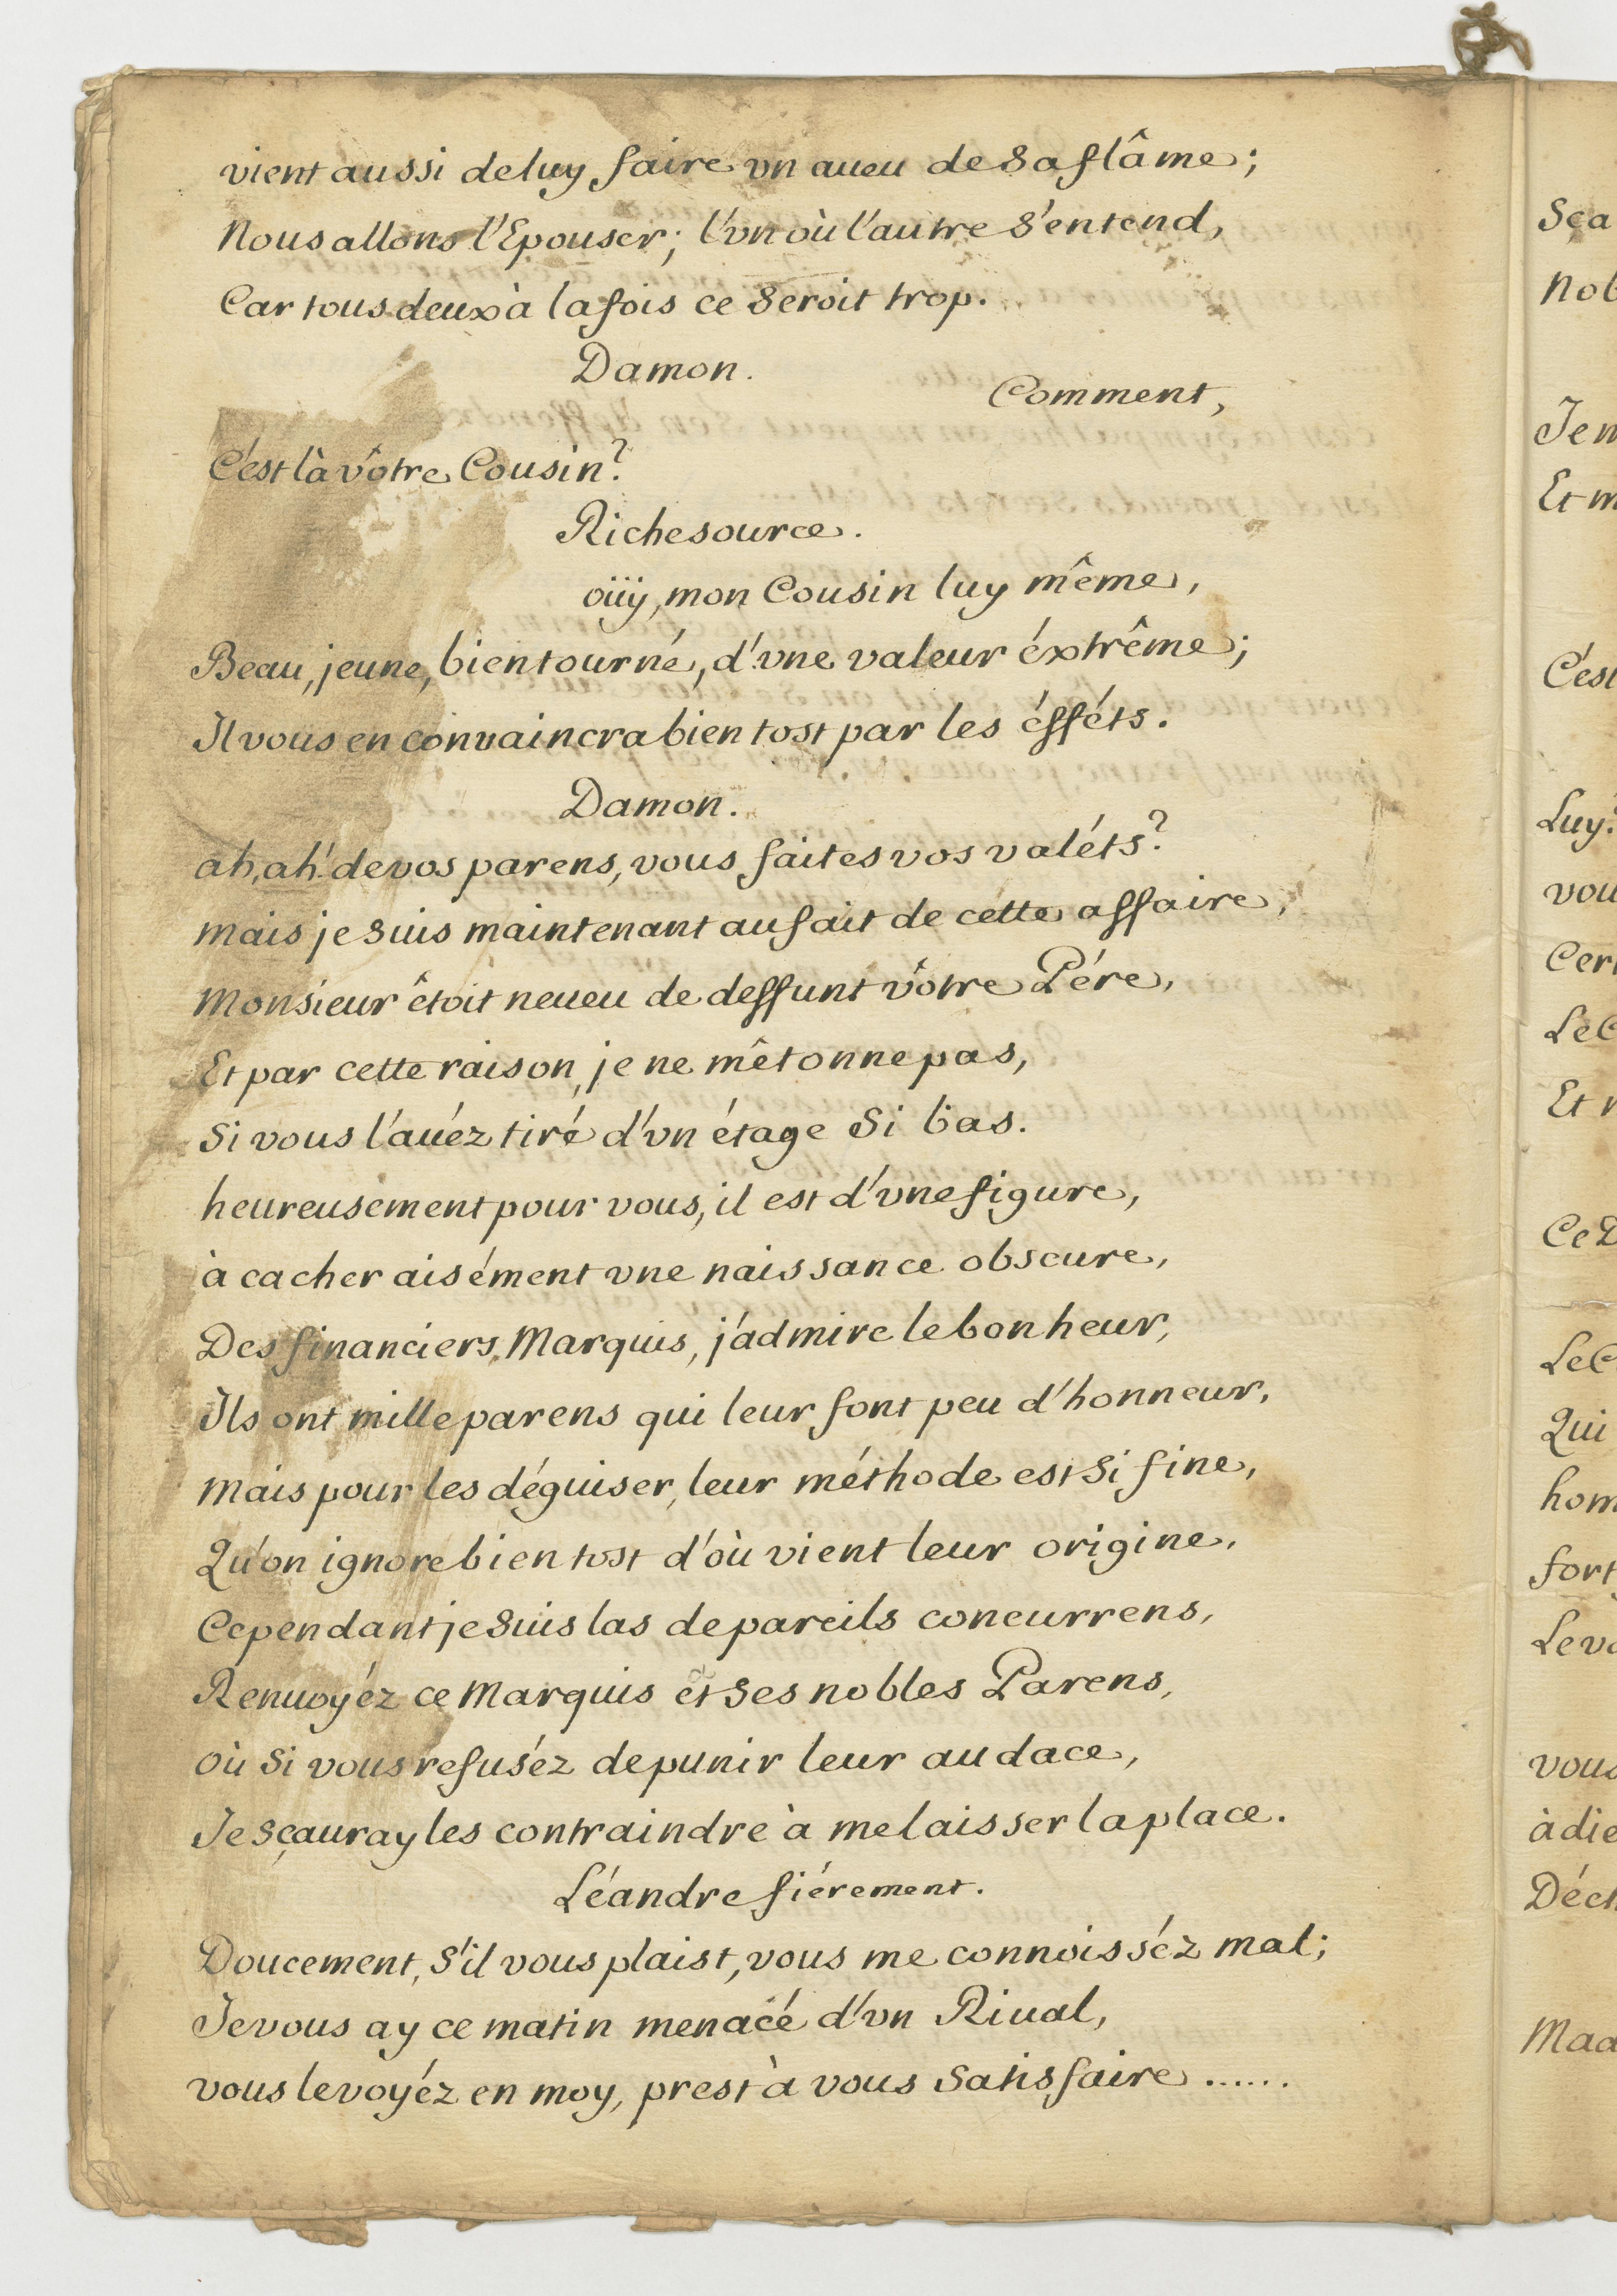 vient aussi de luy faire vn aueu de sa flâme;
Nous allons l'Epouser; l'vn où l'autre s'entend,
Car tous deux à la fois ce seroit trop.
Damon.
Comment,
C'est là vôtre Cousin?
Richesource.
oüy, mon Cousin luy même,
Beau, jeune, bien tourné, d'vne valeur éxtrême;
Il vous en convaincra bien tost par les éfféts.
Damon.
ah, ah! de vos parens, vous faites vos valéts?
mais je suis maintenant au fait de cette affaire,
Monsieur êtoit neueu de deffunt vôtre Pére,
Et par cette raison, je ne m'êtonne pas,
Si vous l'auéz tiré d'vn étage si bas.
heureusement pour vous, il est d'vne figure,
à cacher aisément vne naissance obscure,
Des financiers, Marquis, j'admire le bonheur,
Ils ont mille parens qui leur font peu d'honneur,
Mais pour les déguiser, leur méthode est si fine,
Qu'on ignore bien tost d'où vient leur origine,
Cependant je suis las de pareils concurrens,
Renuoyéz ce Marquis et ses nobles Parens,
où si vous refuséz de punir leur audace,
Je sçauray les contraindre à me laisser la place.
Léandre fiérement.
Doucement, s'il vous plaist, vous me connoisséz mal;
Je vous ay ce matin menacé d'vn Riual,
vous le voyéz en moy, prest à vous satisfaire ......
Sça
Nob
Je m
Et m
C'est
Luy?
vou
Cer
Le C
Et
Ce D
Le C
Qui
hom
fort
Le vo
vous
à die
Déch
Mad